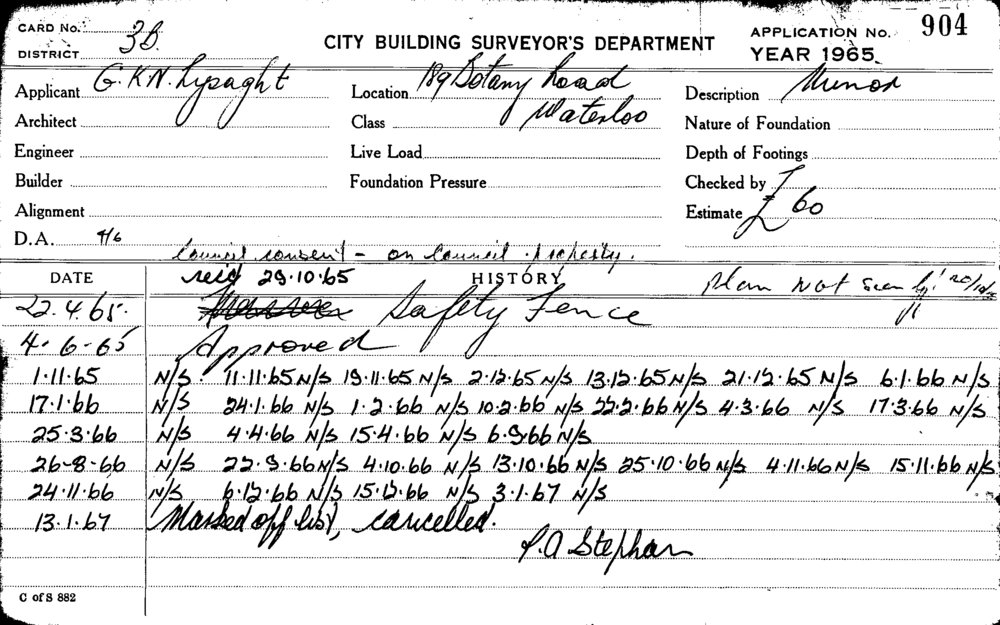 CARD No. 3B. CITY BUILDING SURVEYOR'S DEPARTMENT APPLICATION No. 904
DISTRICT YEAR 1965
Applicant G.K.N. Lysaght Location 189 Botany Road Description Minor
Architect Class Waterloo Nature of Foundation
Engineer Live Load Depth of Footings
Builder Foundation Pressure Checked by
Alignment Estimate £ 60
D.A. 4/6 Council consent - on Council property.
DATE recd 29.10.65 HISTORY Plan not seen
22.4.65. Safety Fence
4-6-65 Approved
1.11.65 N/S. 11.11.65 N/S 19.11.65 N/S 2.12.65 N/S 13.12.65 N/S 21.12.65 N/S 6.1.66 N/S
17.1.66 N/S 24.1.66 N/S 1.2.66 N/S 10.2.66 N/S 22.2.66 N/S 4.3.66 N/S 17.3.66 N/S
25.3.66 N/S 4.4.66 N/S 15.4.66 N/S 6.9.66 N/S
26-8-66 N/S 22.9.66 N/S 4.10.66 N/S 13.10.66 N/S 25.10.66 N/S 4.11.66 N/S 15.11.66 N/S
24.11.66 N/S 6.12.66 N/S 15.12.66 N/S 3.1.67 N/S
13.1.67 Marked off list, cancelled.
P.A Stephan
C of S 882